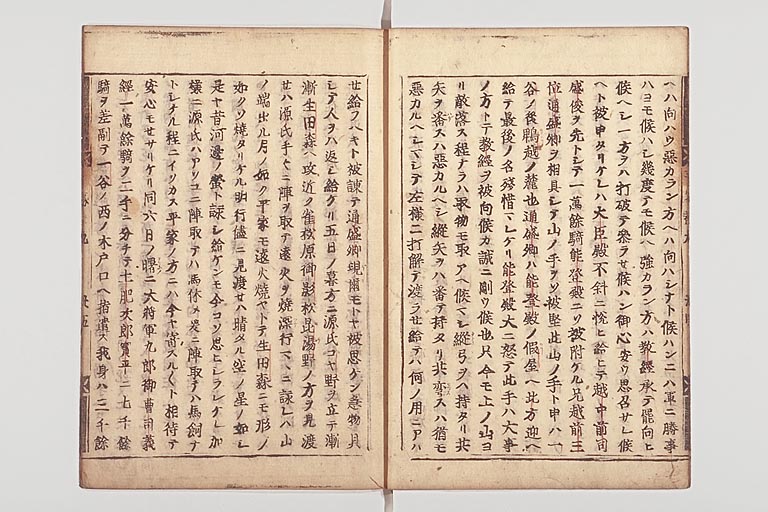 ヘハ向ハウ悪カラン方ヘハ向ハシナト候ハンニハ軍ニ勝事
ハヨモ候ハシ幾度テモ候ヘ強カラン方ハ教経承テ罷向ヒ
候ヘシ一方ヲハ打破テ参ラせ候ハン御心安ウ思召サレ候
ヘト被申タリケレハ大臣殿不斜ニ悦ヒ給ヒテ越中前司
盛俊ヲ先トシテ一萬餘騎能登殿ニソ被附ケル兄越前三
位通盛卿ヲ相具シテ山ノ手ヲソ被堅此山ノ手ト申ハ一
谷ノ後鵯越ノ麓也通盛卿ハ能登殿ノ假屋ヘ北方迎ヘ
給テ最後ノ名殘惜マレケリ能登殿大ニ怒テ此手ハ大事
ノ方トテ教経ヲ被向候カ誠ニ剛ウ候也只今モ上ノ山ヨ
リ敵落ス程ナラハ取物モ取アヘ候マシ縱弓ヲハ持タリ共
矢ヲ番スハ悪カルヘシ縱矢ヲハ番テ持タリ共弯スハ猶モ
悪カルヘシマシテ左様ニ打解テ渡ラせ給テハ何ノ用ニアハ
せ給フヘキト被諫テ通盛卿現ニモトヤ被思ケン急物具
シテ人ヲハ返シ給ケリ五日ノ暮方ニ源氏コヤ野ヲ立テ漸
漸生田森ヘ攻近ク雀松原御影松昆陽野ノ方ヲ見渡
せハ源氏手々ニ陣ヲ取テ遠火ヲ焼深行マヽニ詠レハ山
ノ端出ル月ノ如ク平家モ遠火焼ヤトテ生田森ニモ形ノ
如クソ焼タリケル明行儘ニ見渡せハ晴タル空ノ星ノ如シ
是ヤ昔河邊ノ螢ト詠シ給ケンモ今コソ思ヒシラレケレ加
様ニ源氏ハアソコニ陣取テハ馬休メ爰ニ陣取テハ馬飼ナ
トシケル程ニイソカス平家ノ方ニハ今ヤ寄スルヽト相待テ
安心モせサリケリ同六日ノ曙ニ大将軍九郎御曹司義
經一萬餘騎ヲ二手ニ分チテ土肥次郎實平ニ七千餘
騎ヲ差副テ一谷ノ西ノ木戸口ヘ指遣ス我身ハ三千餘